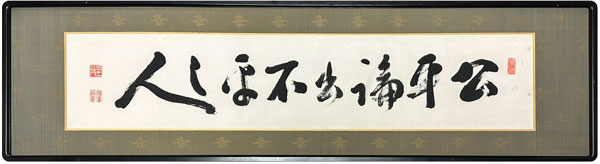 公平論出不平之人